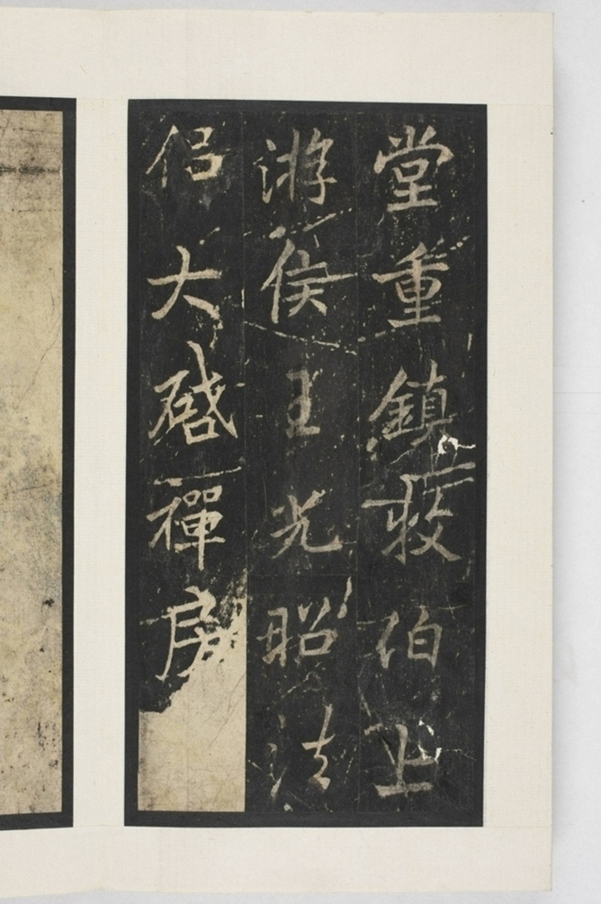 堂重鎮牧伯上
游侯王光昭法
侶大啟禪房